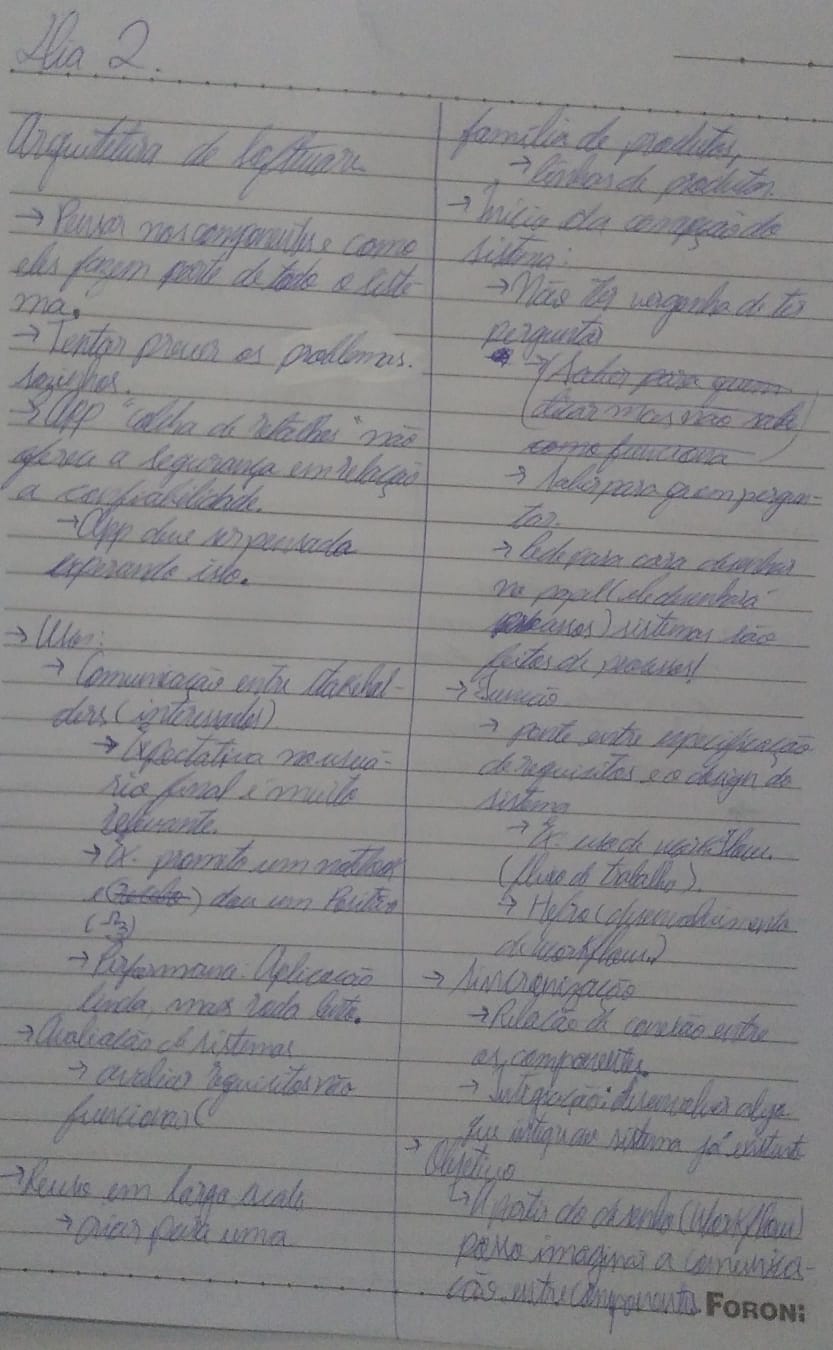 Dia 2.
Arquitetura de Software
→ Pensar nos componentes e como
eles fazem parte de todo o siste-
ma.
→ Tentar prever os problemas.
→ App "colcha de retalhos" não
oferece a segurança em relação
a confiabilidade.
→ App deve ser pensada
esperando isso.
→ Usos:
→ Comunicação entre stakehol-
ders (interessados)
→ Expectativa no usuá-
rio final é muito
relevante.
→ Ex. prometo um
e (recebo) dou um Positivo
→ Performance: Aplicação
linda, mas roda lento.
→ Avaliação de sistemas
→ avaliar requisitos não
funcionais (
→ Reuso em larga escala
→ criar para uma
família de produtos,
→ linhas de produtos.
→ Início da concepção do
sistema:
→ Não ter vergonha de ter
pergunta
→ (Saber para quem
mas não sabe)
como funciona
→ Saber para quem pergun-
tar.
→ Pede para cara desenhar
no papel (ele desenhará
) sistemas são
feitos de processos!
→ Função
→ ponte entre especificação
de requisitos e o design do
sistema
→ Ex: uso de workflow.
(fluxo de trabalho).
→ (desenvolvimento
de workflow)
→ Sincronização
→ Relação de conexão entre
os componentes.
→ Integração: desenvolver algo
que integre ao sistema já existente
→ Objetivo
↳ A partir do desenho (Workflow)
posso imaginar a comunica-
ção entre componentes
FORONI